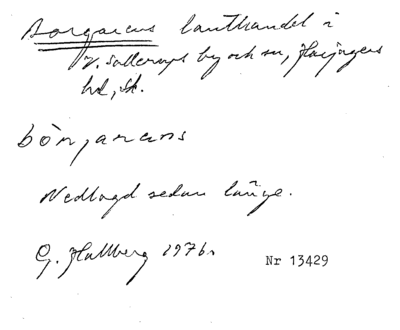 Borgarens lanthandel i
V. Sallerups by och sn, Harjagers
hd, Sk.
bòrjarens
Nedlagd sedan länge.
G. Hallberg 1976.
Nr 13429